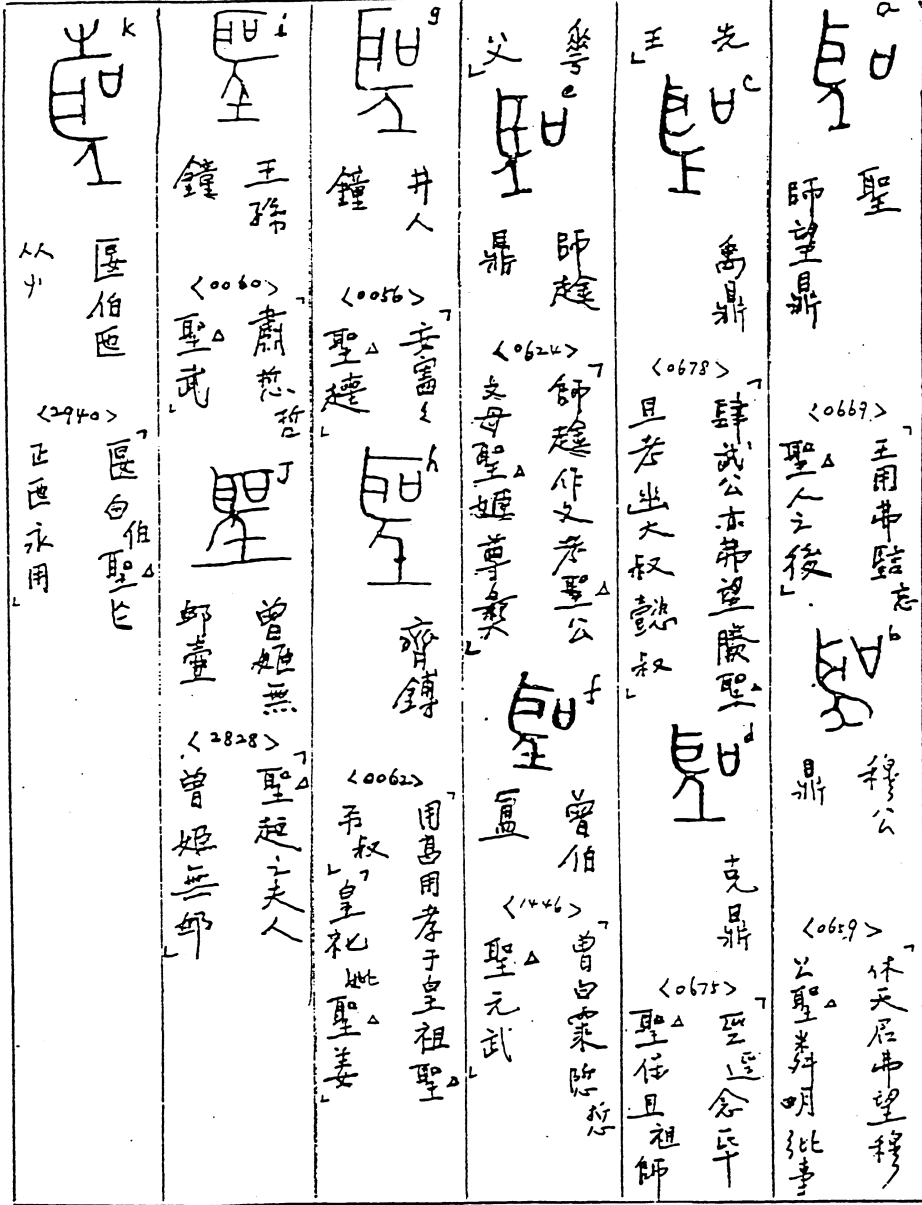 a
聖
師望鼎
<0669>
「王用弗𦣠忘
聖△人之後」
b
穆公
鼎
<0659>
「休天君弗望穆
公聖△粦明
先
王」
c
禹鼎
<0678>
「肆武公亦弗望朕聖△
且考幽大叔懿叔」
d
克鼎
<0675>
念
聖△保且祖師
父」
e
師趛
鼎
<0624>
「師趛作文考聖△公
文母聖△姬尊」
f
曾伯
<1446>
「曾白霥悊哲
聖△元武」
g
井人
鐘
<0056>
「
聖△趩」
h
齊鎛
<0062>
「用享用孝于皇祖聖△
叔」「皇妣聖△姜」
i
王孫
鐘
<0060>
「肅悊哲
聖△武」
j
曾姬無
卹壺
<2828>
「聖△趄之夫人
曾姬無卹」
k
匽伯匜
<2940>
「匽白伯聖△
正匜永用」